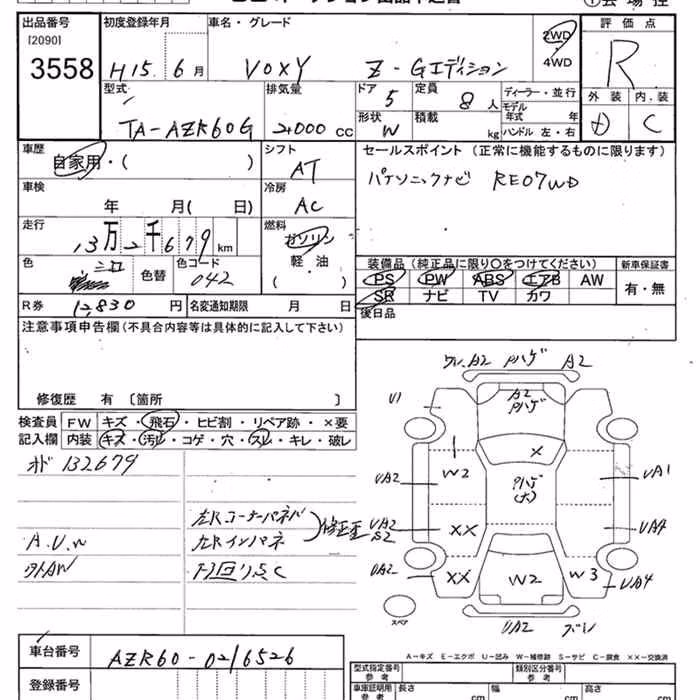 出品番号 初度登録年月 車名・グレード 評価点
[2090] 2WD
3558 H15 6月 VOXY Z-Gエディション ・4WD R
型式 排気量 ドア 5 定員 8人 ディーラー・並行 外装 内装
TA-AZR60G 2000 CC 形状 W 積載 kg モデル年式 年 ハンドル 左・右 D C
車歴 シフト セールスポイント (正常に機能するものに限ります)
自家用・( ) AT パナソニックナビ RE07WD
車検 冷房
年 月( 日) AC
走行 燃料
13万2千679km ガソリン
色 色替 色コード 軽・油 装備品(純正品に限り○をつけてください) 新車保証書
042 ( ) PS PW ABS エアB AW 有・無
R券 12,830円 名変通知期限 月 日 SR ナビ TV カワ
注意事項申告欄(不具合内容等は具体的に記入して下さい) 後日品
修復歴 有 〔箇所 〕
検査員 FW キズ・飛石・ヒビ割・リペア跡・×要
記入欄 内装 キズ・汚れ・コゲ・穴・スレ・キレ・破レ
132679
左Rコーナーパネル
A.U.W 左Rインパネ 修正歪
A2 Pハゲ A2
A2
Pハゲ
U1
W2 X
UA2 Pハゲ UA1
(大)
UA2 XX UA4
S2
UA2 XX W2 W3 UA4
スペア UA2
A-キズ E-エクボ U-凹み W-補修跡 S-サビ C-腐食 XX-交換済
車台番号 AZR60-0216526
登録番号
型式指定番号 参考 類別区分番号 参考
車庫証明用 参考 長さ cm 幅 cm 高さ cm